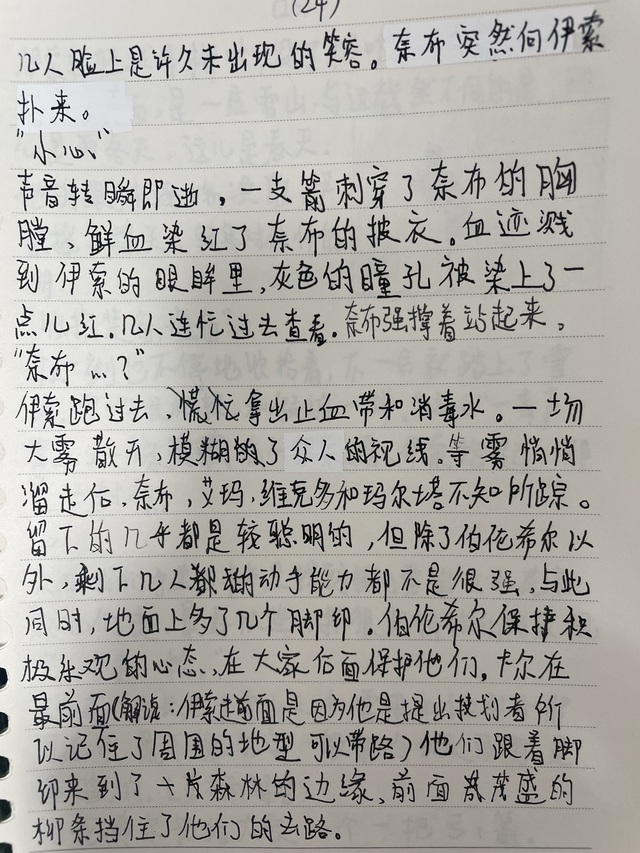 (24)
几人脸上是许久未出现的笑容。奈布突然向伊索
扑来。
"小心、"
声音转瞬即逝，一支箭刺穿了奈布的胸
膛、鲜血染红了奈布的披衣。血迹溅
到伊索的眼眸里，灰色的瞳孔被染上了一
点儿红。几人连忙过去查看。奈布强撑着站起来。
"奈布…？"
伊索跑过去、慌忙拿出止血带和消毒水。一场
大雾散开，模糊的了众人的视线。等雾悄悄
溜走后，奈布，艾玛，维克多和玛尔塔不知所踪。
留下的几乎都是较聪明的，但除了伯伦希尔以
外，剩下几人都的动手能力都不是很强，与此
同时，地面上多了几个脚印。伯伦希尔保持积
极乐观的心态，在大家后面保护他们，卡尔在
最前面(解读：伊索走前面是因为他是提出计划者所
以记住了周围的地型可以带路)他们跟着脚
印来到了一片森林的边缘，前面茂盛的
柳条挡住了他们的去路。